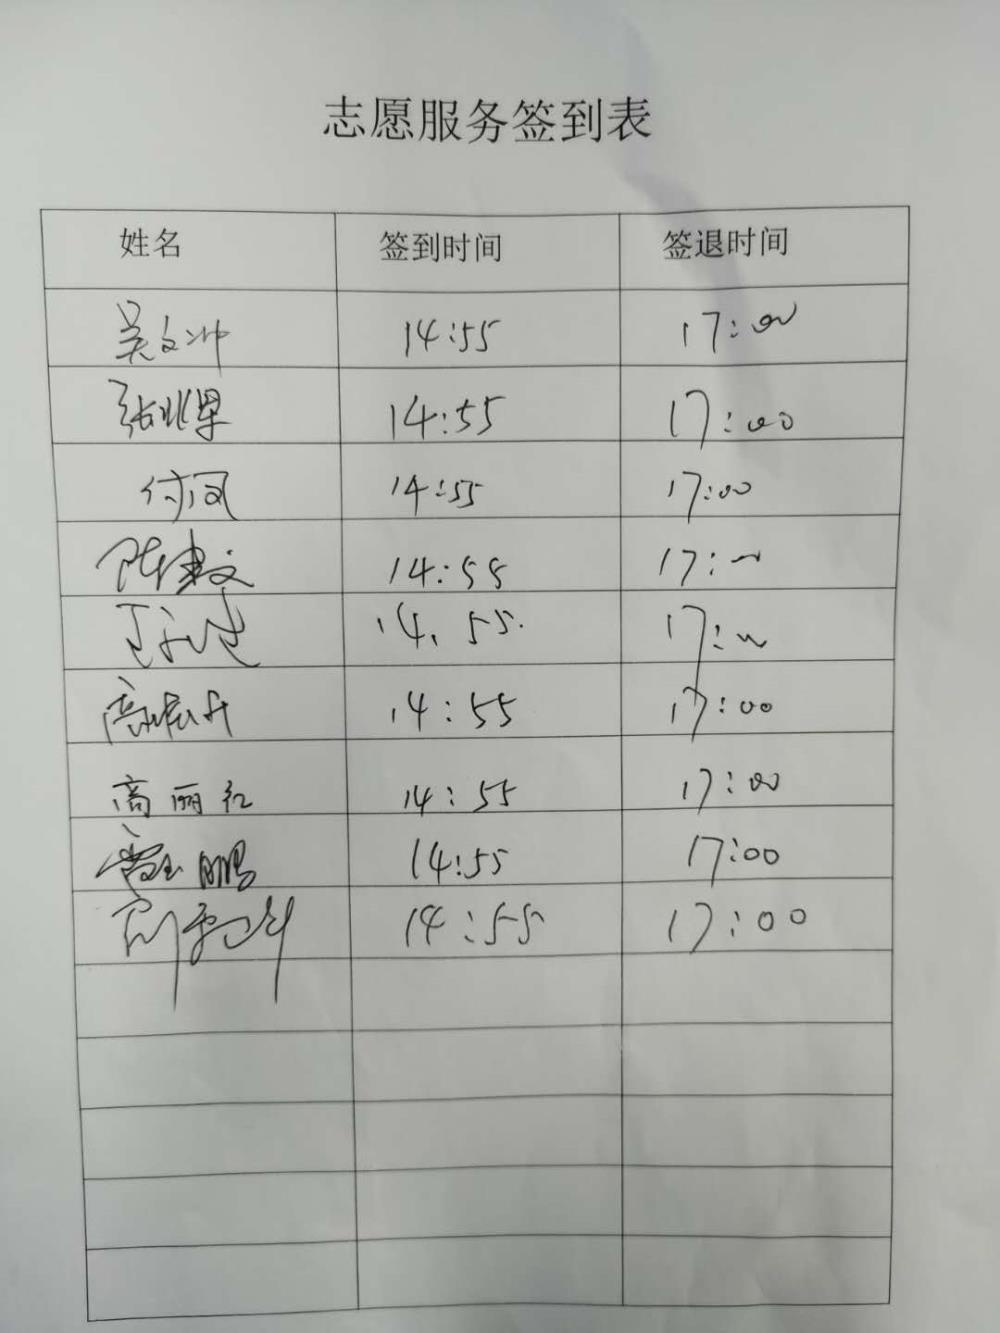 志愿服务签到表
姓名 签到时间 签退时间
吴文冲 14:55 17:00
张兆军 14:55 17:00
付凤 14:55 17:00
陈建文 14:55 17:00
14.55. 17:00
高 14:55 17:00
高丽红 14:55 17:00
鹏 14:55 17:00
14:55 17:00